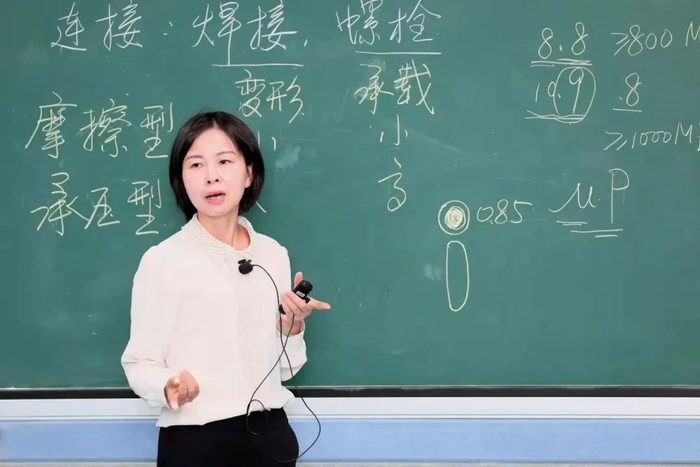 连接：焊接，螺栓
变形 承载
小 小
高
摩擦型
承压型
8.8 ≥800 M
10.9 .8
≥1000M
0.85 μ.P